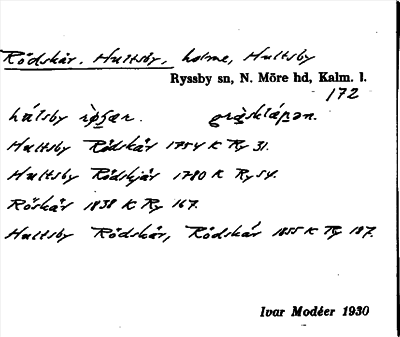 Rödskär. Hultsby, holme, Hultsby
Ryssby sn, N. Möre hd, Kalm. l.
172
Hultsby Rödskär 1754 K Ry 31.
Hultsby Rödskjär 1780 K Ry 54.
Röskär 1838 K Ry 167.
Hultsby Rödskär, Rödskär 1855 K Ry 187.
Ivar Modéer 1930